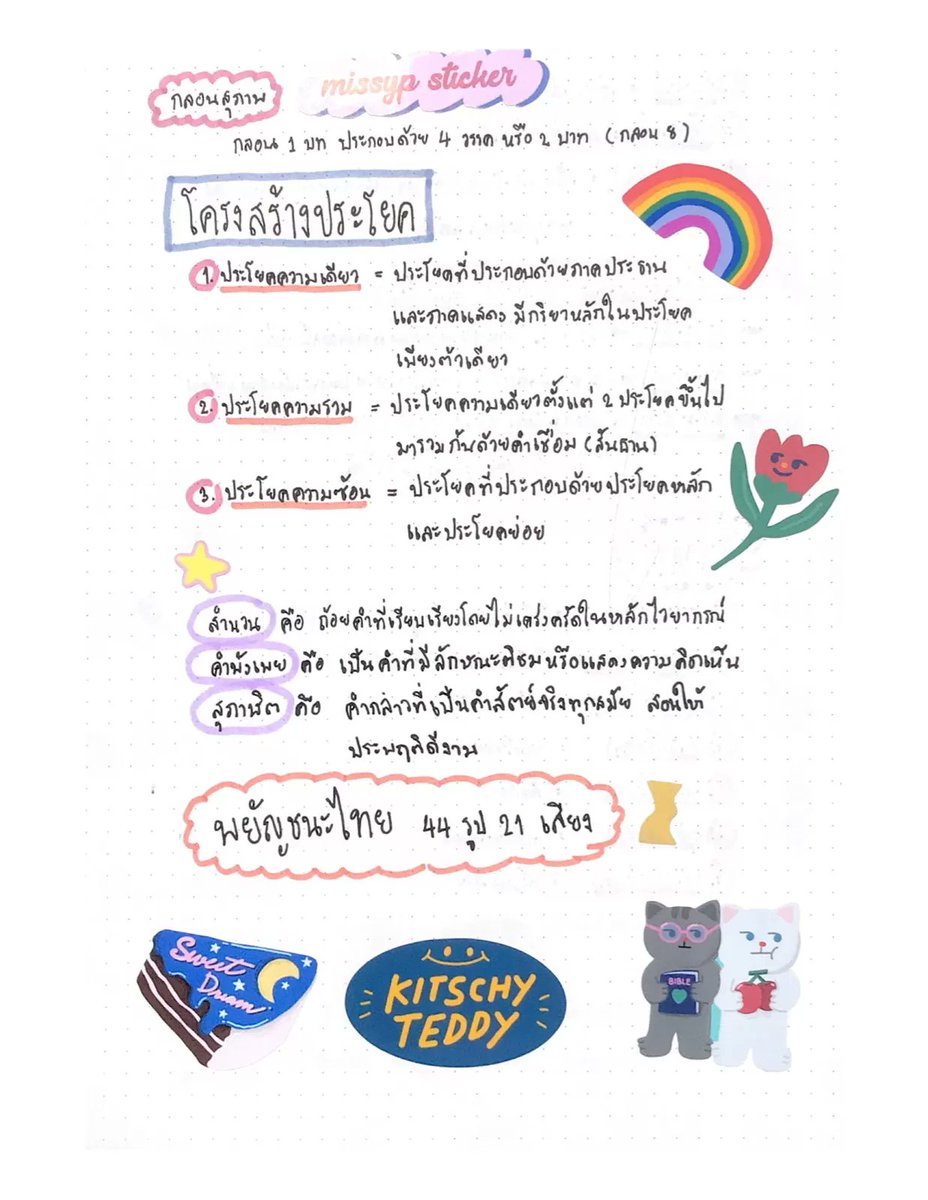 กลอนสุภาพ
missyp sticker
กลอน 1 บท ประกอบด้วย 4 วรรค หรือ 2 บาท (กลอน 8)
โครงสร้างประโยค
1. ประโยคความเดียว = ประโยคที่ประกอบด้วยภาคประธาน
และภาคแสดง มีกริยาหลักในประโยค
เพียงตัวเดียว
2. ประโยคความรวม = ประโยคความเดียวตั้งแต่ 2 ประโยคขึ้นไป
มารวมกันด้วยคำเชื่อม (สันธาน)
3. ประโยคความซ้อน = ประโยคที่ประกอบด้วยประโยคหลัก
และประโยคย่อย
สำนวน คือ ถ้อยคำที่เรียบเรียงโดยไม่เคร่งครัดในหลักไวยากรณ์
คำพังเพย คือ เป็นคำที่มีลักษณะติชมหรือแสดงความคิดเห็น
สุภาษิต คือ คำกล่าวที่เป็นคำสัตย์จริงทุกสมัย สอนให้
ประพฤติดีงาม
พยัญชนะไทย 44 รูป 21 เสียง
Sweet
Dream
KITSCHY
TEDDY
BIBLE